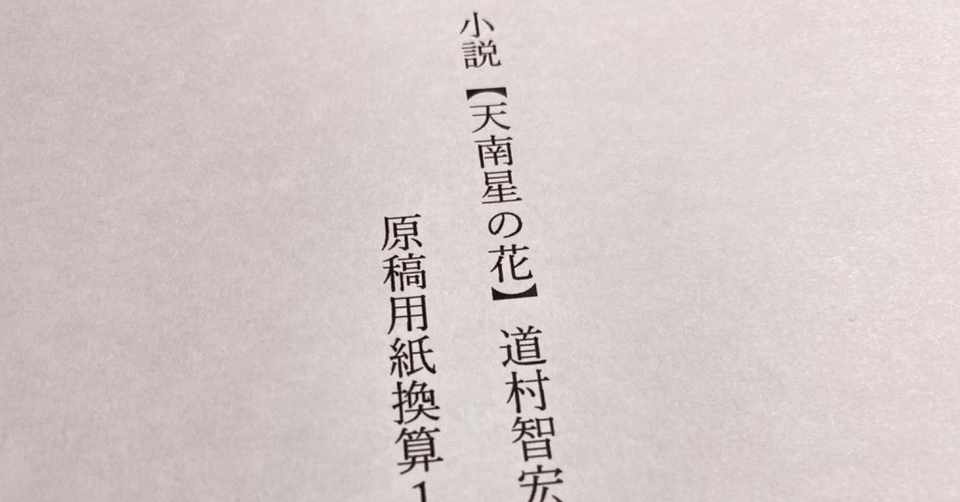 小説【天南星の花】道村智宏
原稿用紙換算1